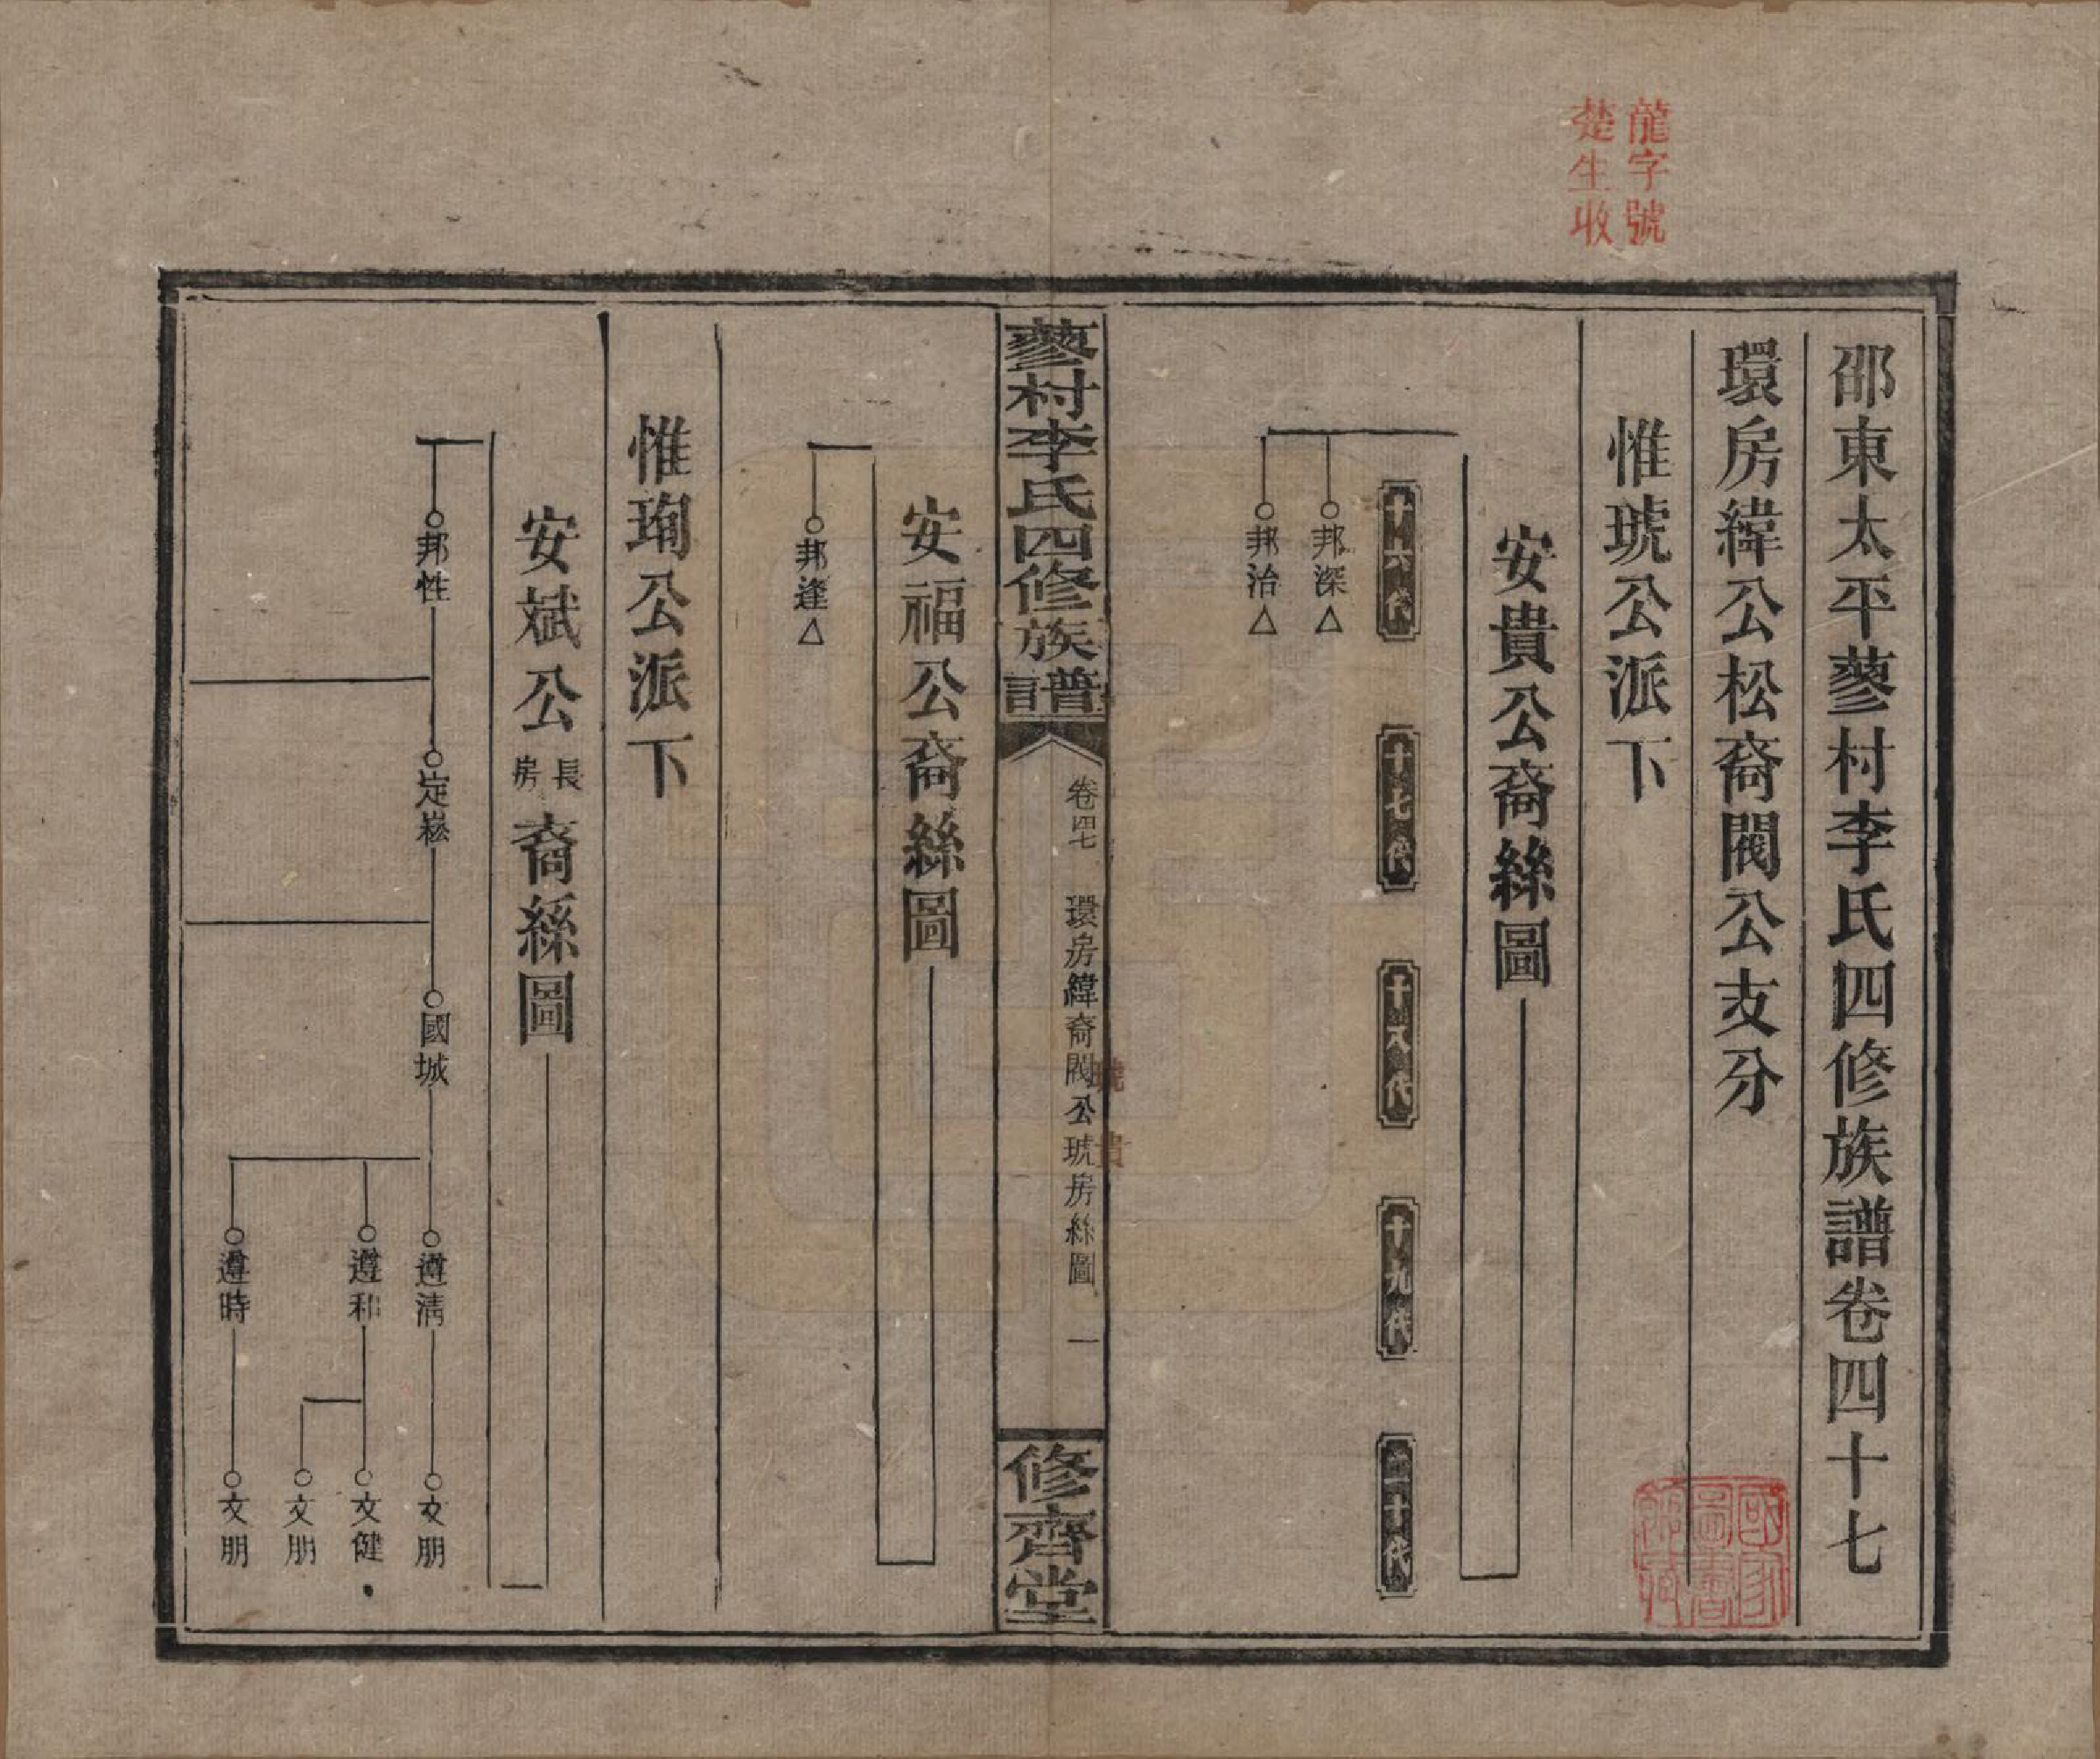 龍字號
楚生收
邵東太平蓼村李氏四修族譜卷四十七
環房緯公松裔閥公支分
惟琥公派下
安貴公裔絲圖
十六代
十七代
十八代
十九代
二十代
邦深△
邦治△
蓼村李氏四修族譜
卷四七
環房緯裔閥公琥房絲圖
一
修齊堂
琥
貴
安福公裔絲圖
邦逢△
惟珣公派下
安斌公長房裔絲圖
邦性
定崧
國城
遵清
遵和
遵時
文朋
文健
文朋
文朋
國家圖書館藏